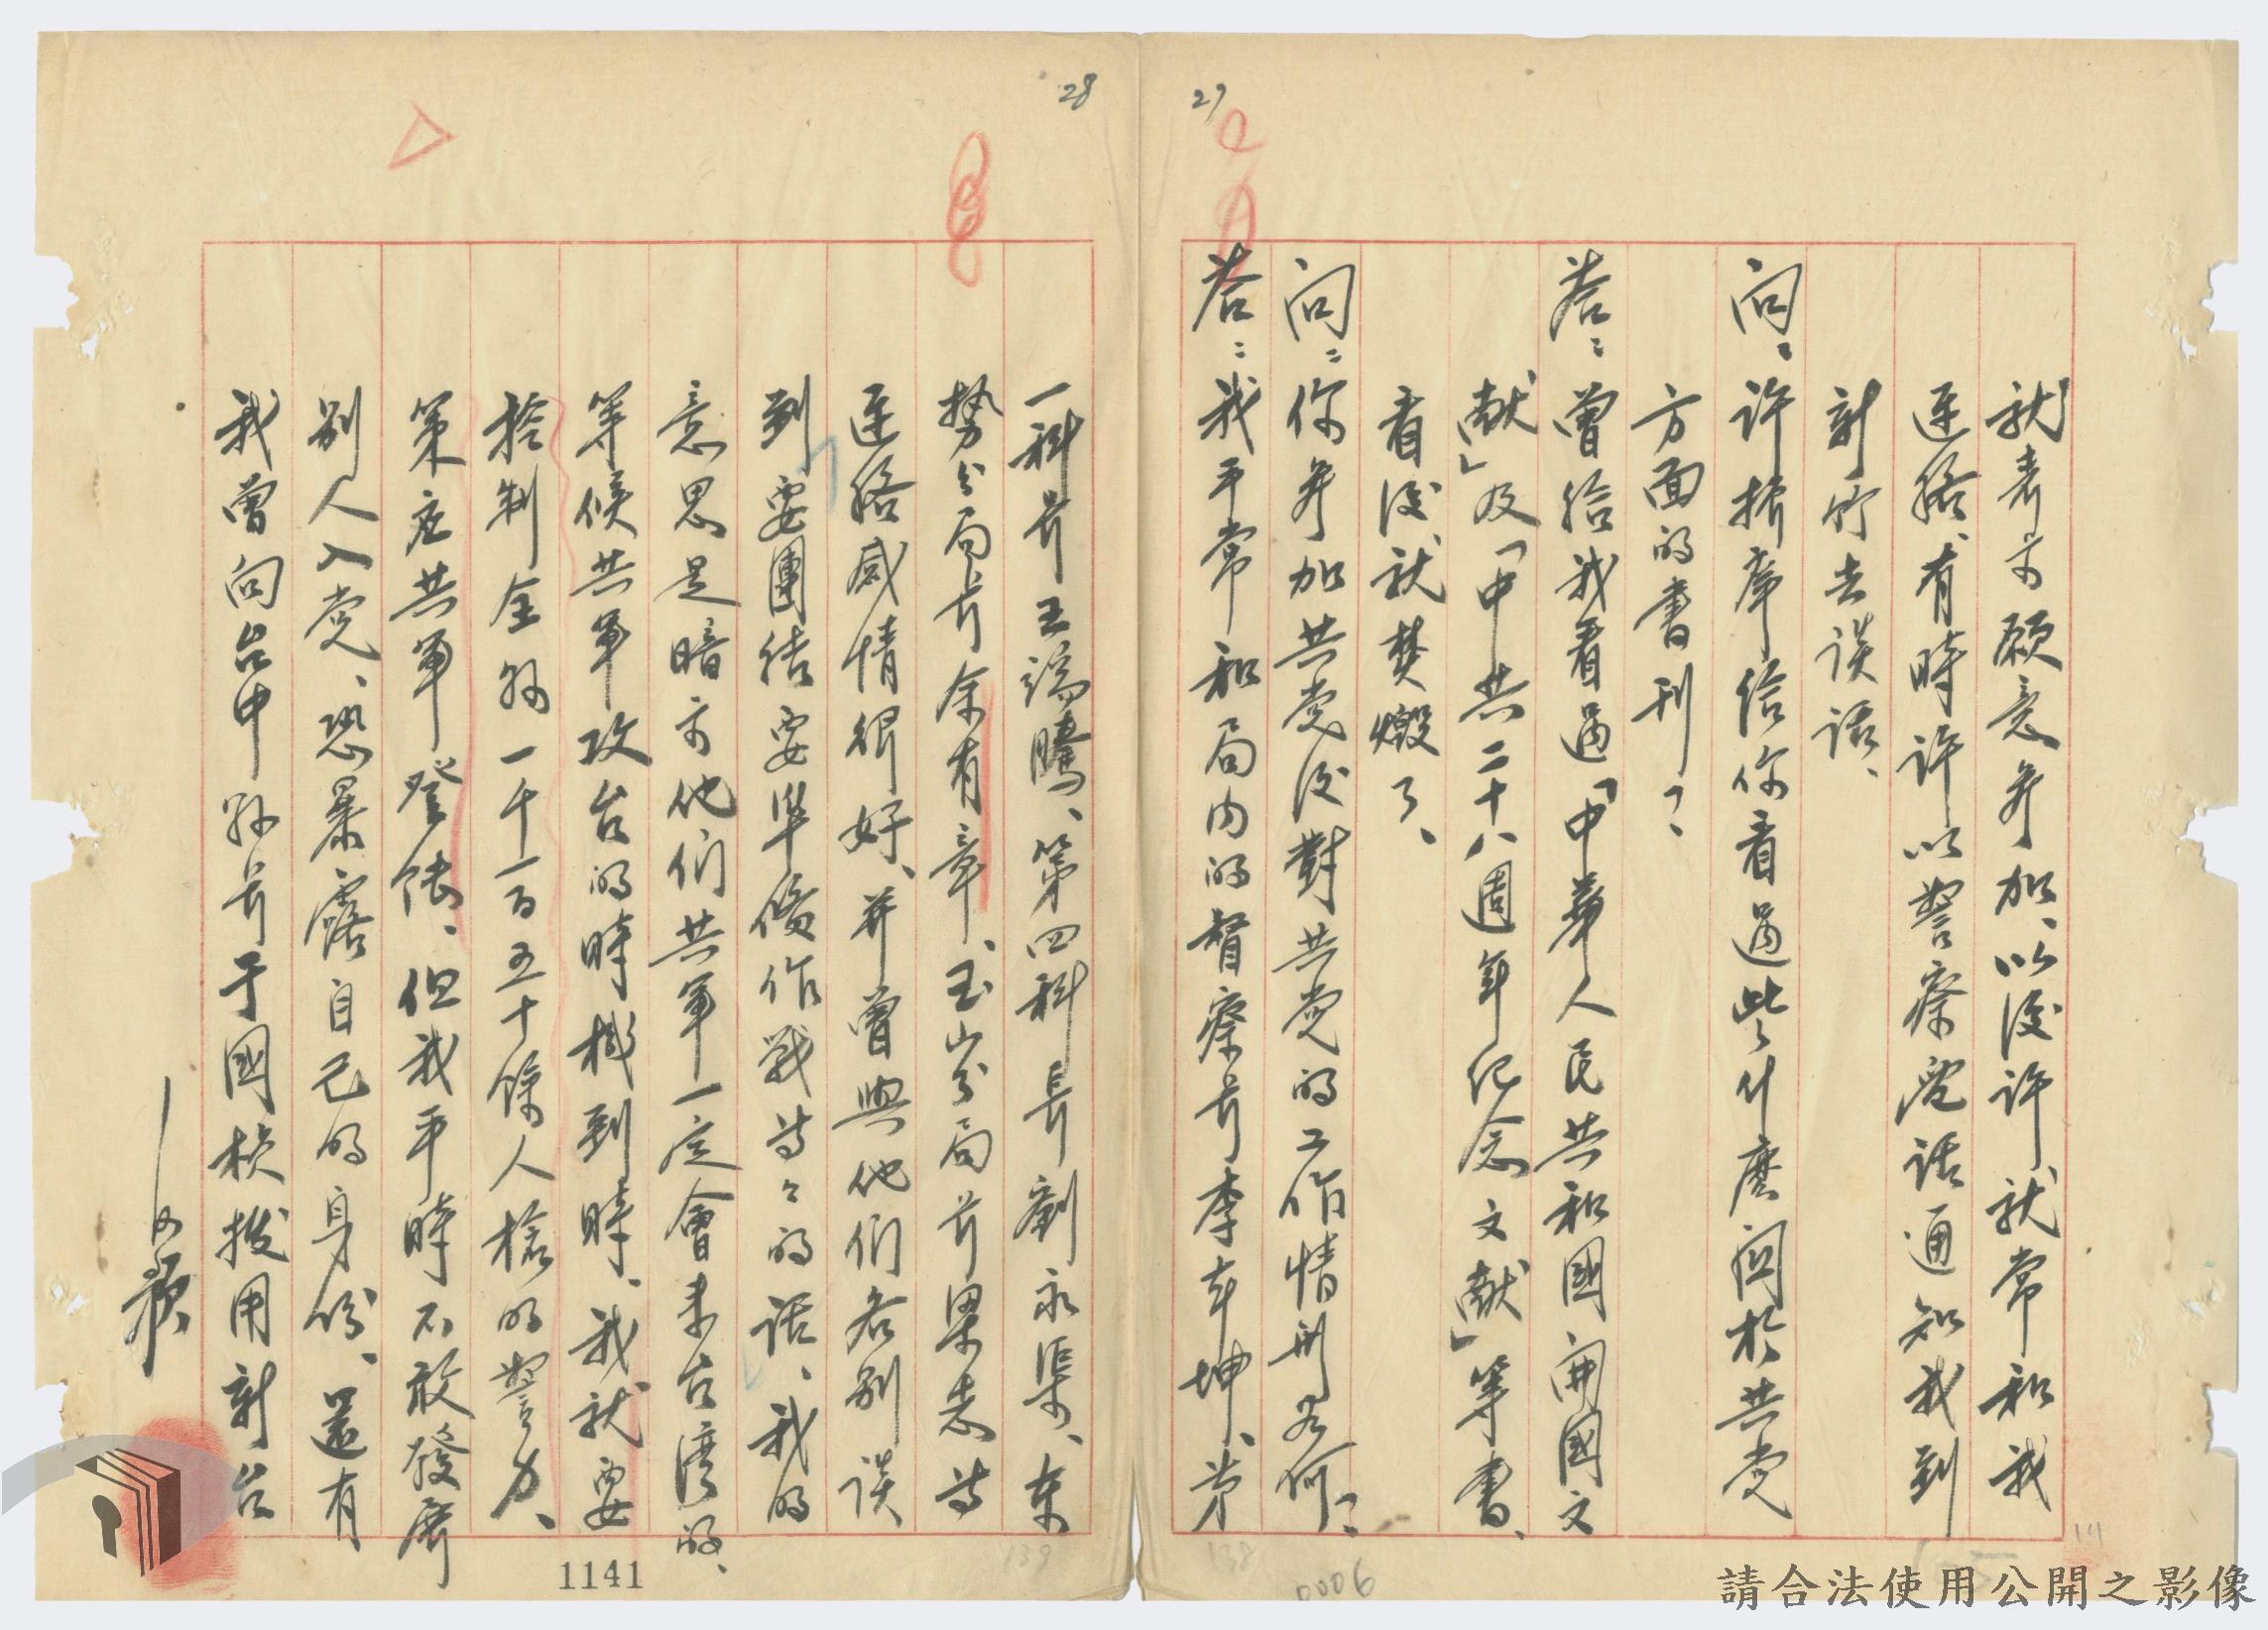 27
就表示願意参加、以後許、就常和我
連絡、有時許以警察电話通知我到
新竹去談話、
问：許振庠給你看過些什麽関於共党
方面的書刊？、
答：曾給我看過「中華人民共和國開國文
献」及「中共二十八週年纪念文献」等書、
看後、就焚燬了、
问：你参加共党後對共党的工作情形若何？、
答：我平常和局内的督察長李奉坤、第
28
一科長王鴻騰、第四科長劉永渠、東
勢分局長余有章、玉山分局長梁志等
連絡感情很好、并曾與他们各别談
到要團结要準備作戰等々的話、我的
意思是暗示他们共軍一定會来台湾的、
等候共軍攻台的時機到時、我就要
控制全縣一千一百五十餘人槍的警力、
策应共軍登陸、但我平時不敢發展
别人入党、恐暴露自己的身份、還有
我曾向台中縣長于國楨拨用新台
1141
0006
138
139
請合法使用公開之影像